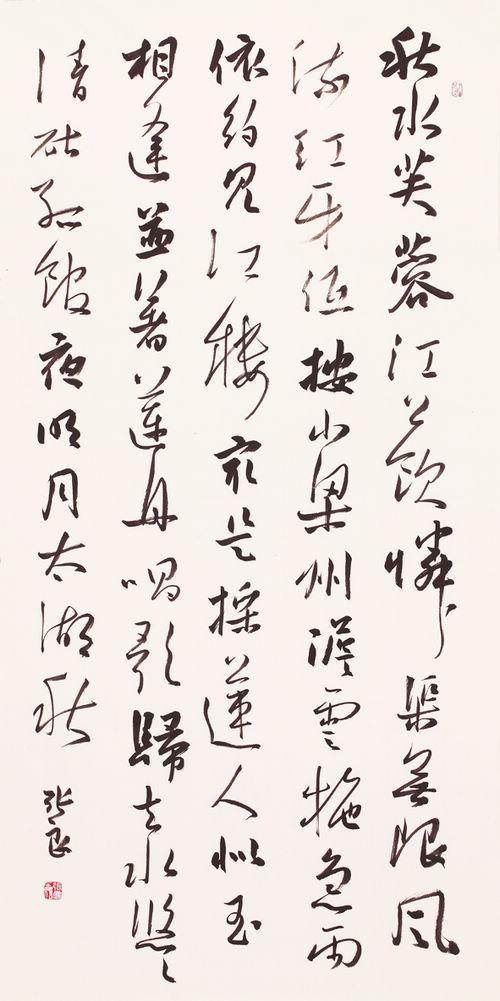 秋水芙蓉江上飲憐渠無限風
流紅牙低按小梁州澹雲拖急雨
依約見江樓最是採蓮人似玉
相逢並著蓮舟唱歌歸去水悠々
清砧孤館夜明月太湖秋
張良